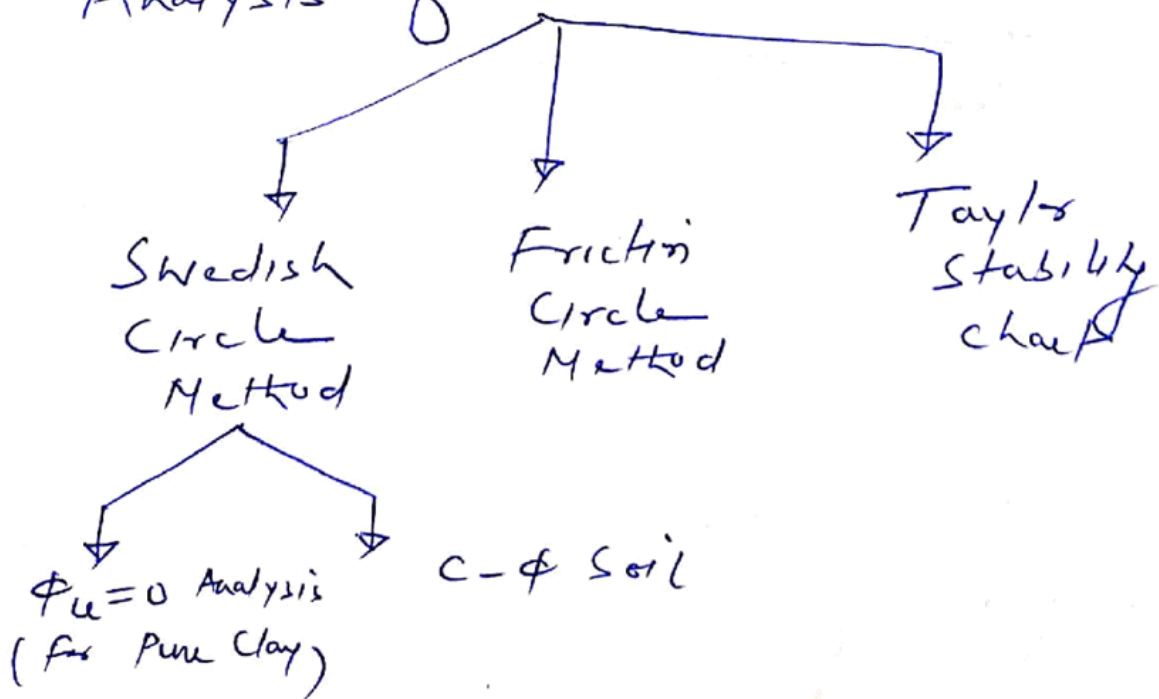 Analysis
Swedish
Circle
Method
Friction
Circle
Method
Taylor
Stability
Chart
Φu=0 Analysis
(for Pure Clay)
C-φ Soil